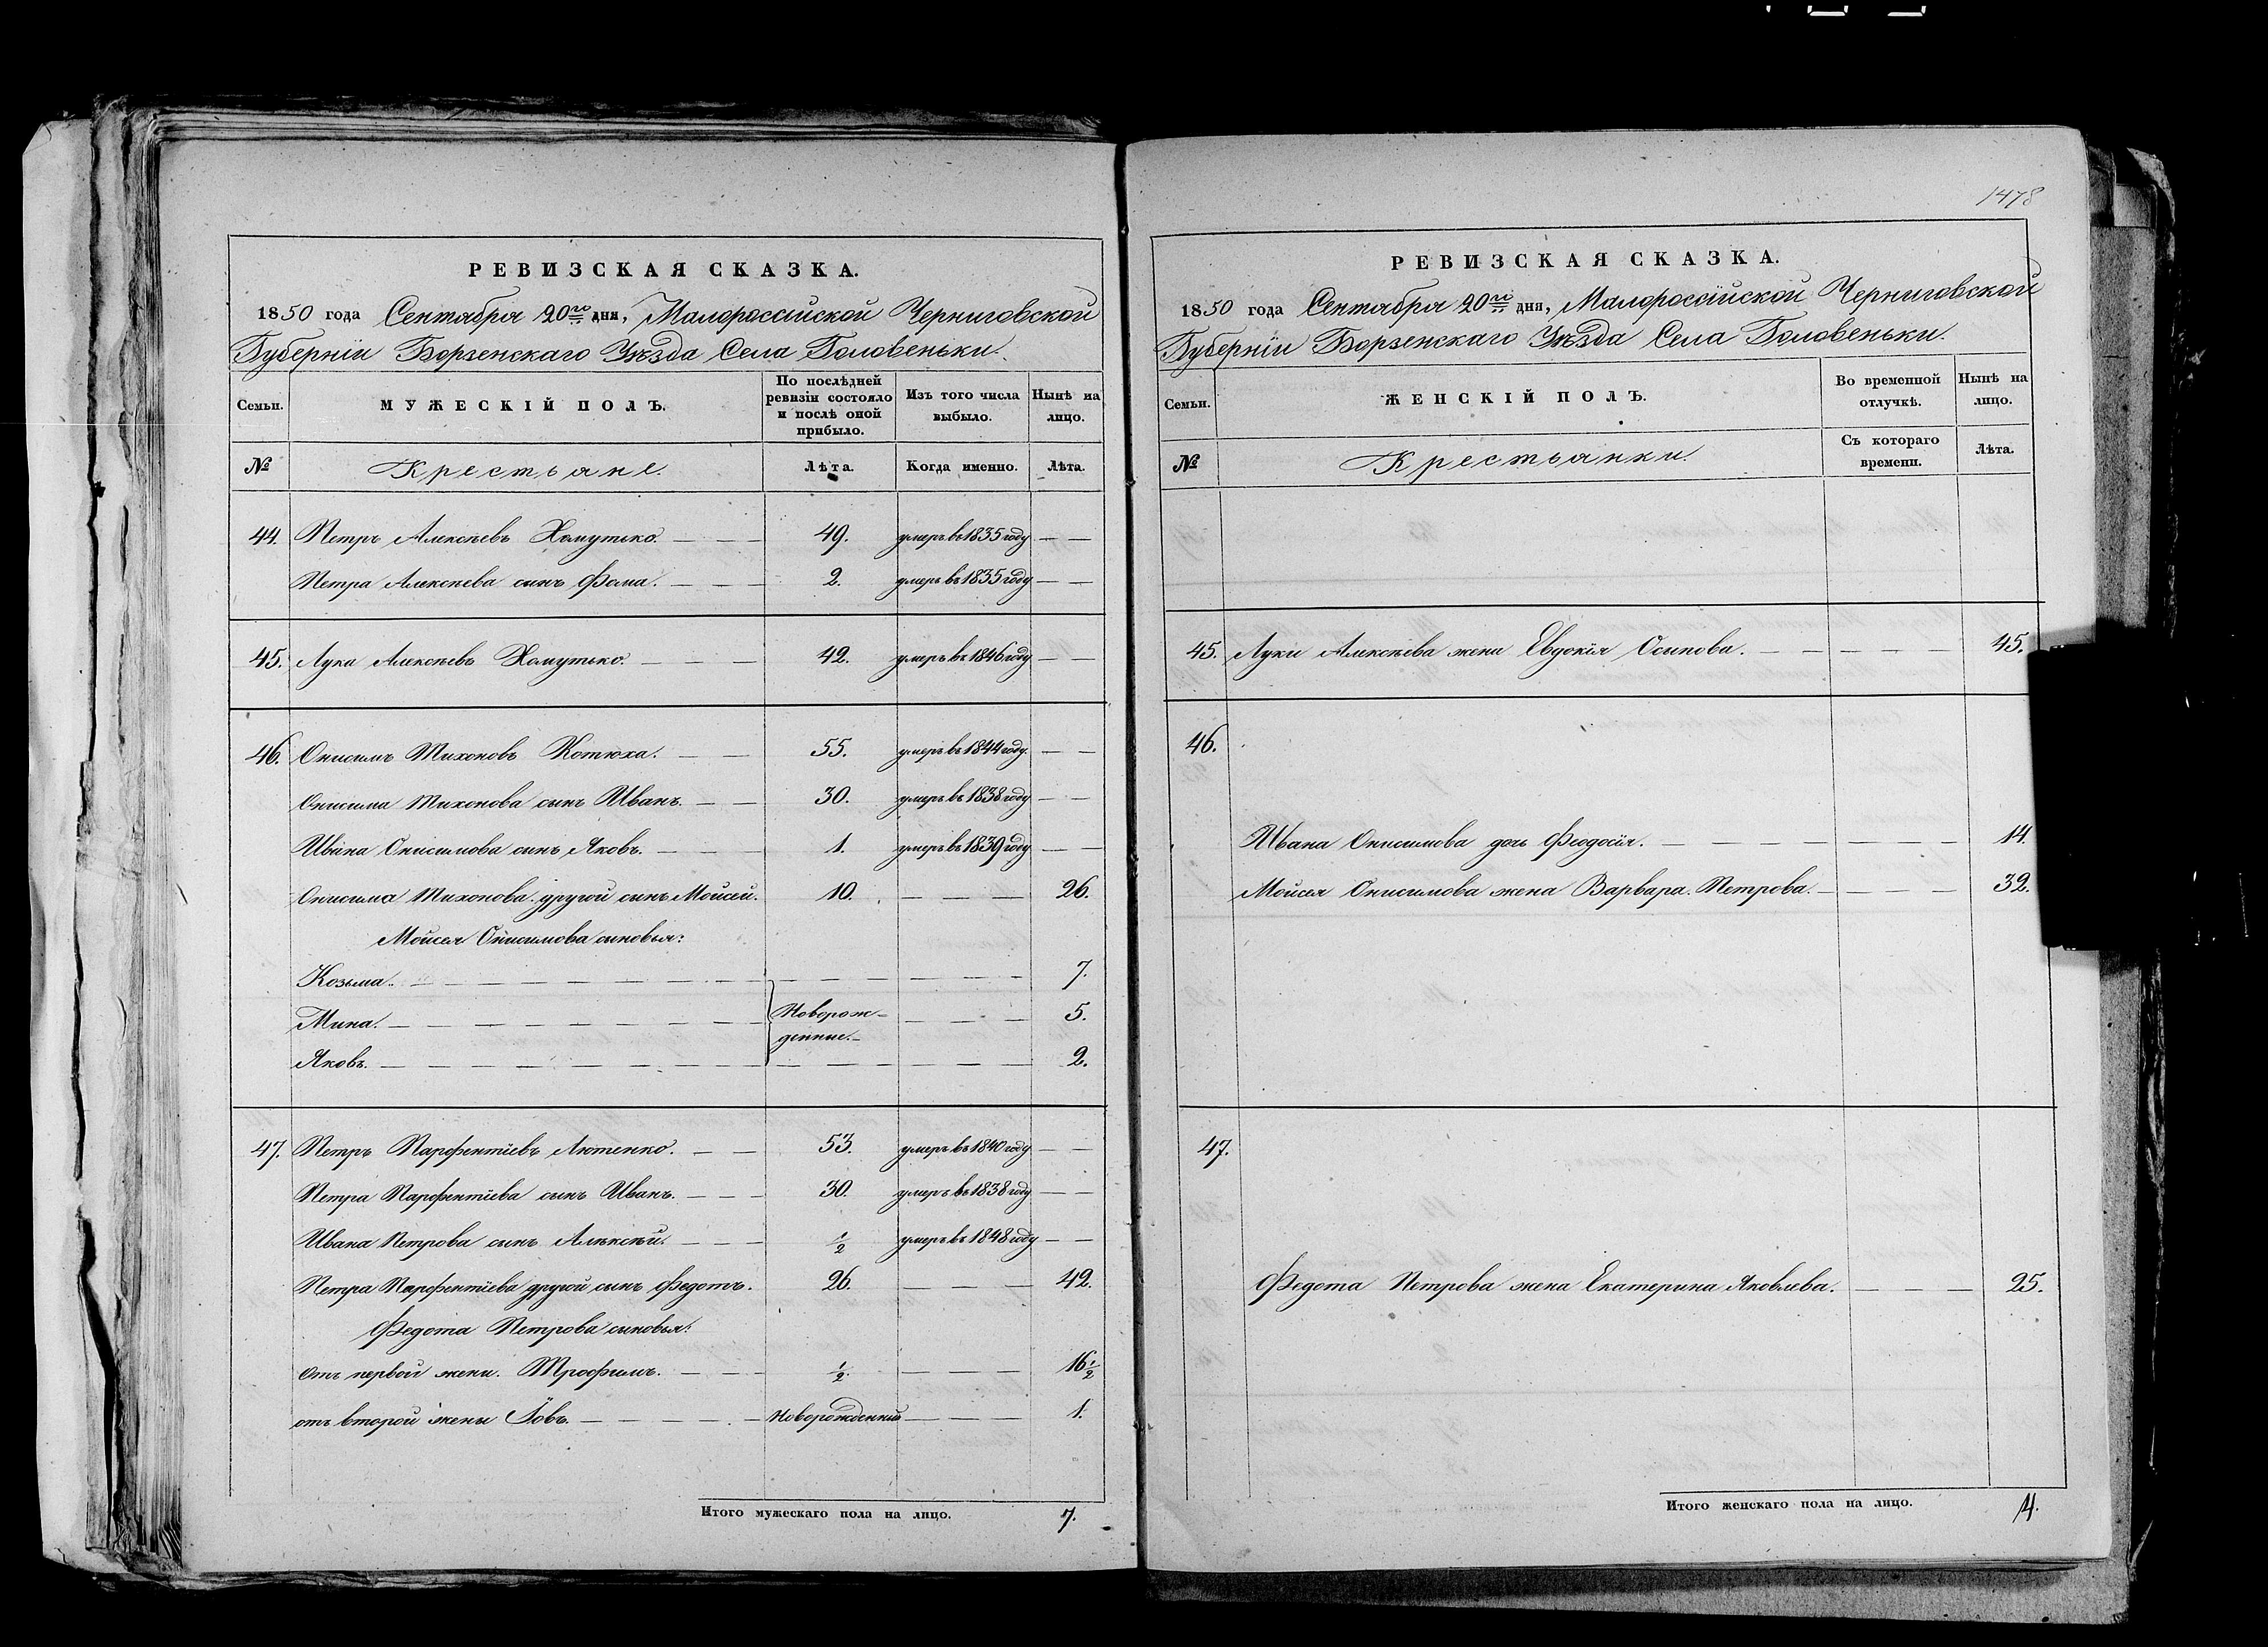 РЕВИЗСКАЯ СКАЗКА.
1850 года Сентября 20го дня, Малороссійской Черниговской
Губерніи Борзенскаго Уѣзда Села Головеньки.
Семьи.
МУЖЕСКІЙ ПОЛЪ.
По послѣдней ревизіи состояло и послѣ оной прибыло.
Изъ того числа выбыло.
Нынѣ на лицо.
№ Крестьяне. Лѣта. Когда именно. Лѣта.
44. Петръ Алексѣевъ Хомутько. — — 49. умеръ въ 1835 году — —
Петра Алексѣева сынъ Фома. — — 2. умеръ въ 1835 году — —
45. Лука Алексѣевъ Хомутько. — — — 42. умеръ въ 1846 году — —
46. Онисимъ Тихоновъ Котюха. — — 55. умеръ въ 1844 году. — —
Онисима Тихонова сынъ Иванъ. — — 30. умеръ въ 1838 году — —
Ивана Онисимова сынъ Яковъ. — — — 1. умеръ въ 1839 году — —
Онисима Тихонова другой сынъ Мойсей. 10. — — — 26.
Мойсея Онисимова сыновья:
Козьма. — — — 7.
Мина. — — — Новорож- — — — 5.
денные. —
Яковъ. — — — 2.
47. Петръ Парфентіевъ Лютенко. — — 53. умеръ въ 1840 году — —
Петра Парфентіева сынъ Иванъ. — — — 30. умеръ въ 1838 году — —
Ивана Петрова сынъ Алексѣй. — — — 1/2 умеръ въ 1848 году — —
Петра Парфентіева другой сынъ Федотъ. 26. — — — 42.
Федота Петрова сыновья:
отъ первой жени. Трофимъ. — — — 1/2. — — — 16 1/2
отъ второй жены Іовъ. — — — — Новорожденный — — — 1.
Итого мужескаго пола на лицо. 7.
1478
РЕВИЗСКАЯ СКАЗКА.
1850 года Сентября 20го дня, Малороссійской Черниговской
Губерніи Борзенскаго Уѣзда Села Головеньки.
Семьи.
ЖЕНСКІЙ ПОЛЪ.
Во временной отлучкѣ.
Нынѣ на лицо.
№ Крестьянки. Съ котораго времени. Лѣта.
45. Луки Алексѣева жена Евдокія Осипова. — — — — — 45.
46.
Ивана Онисимова дочь Феодосія. — — — — — — — 14.
Мойсея Онисимова жена Варвара Петрова. — — — — 32.
47.
Федота Петрова жена Екатерина Яковлева. — — — 25.
Итого женскаго пола на лицо. 4.